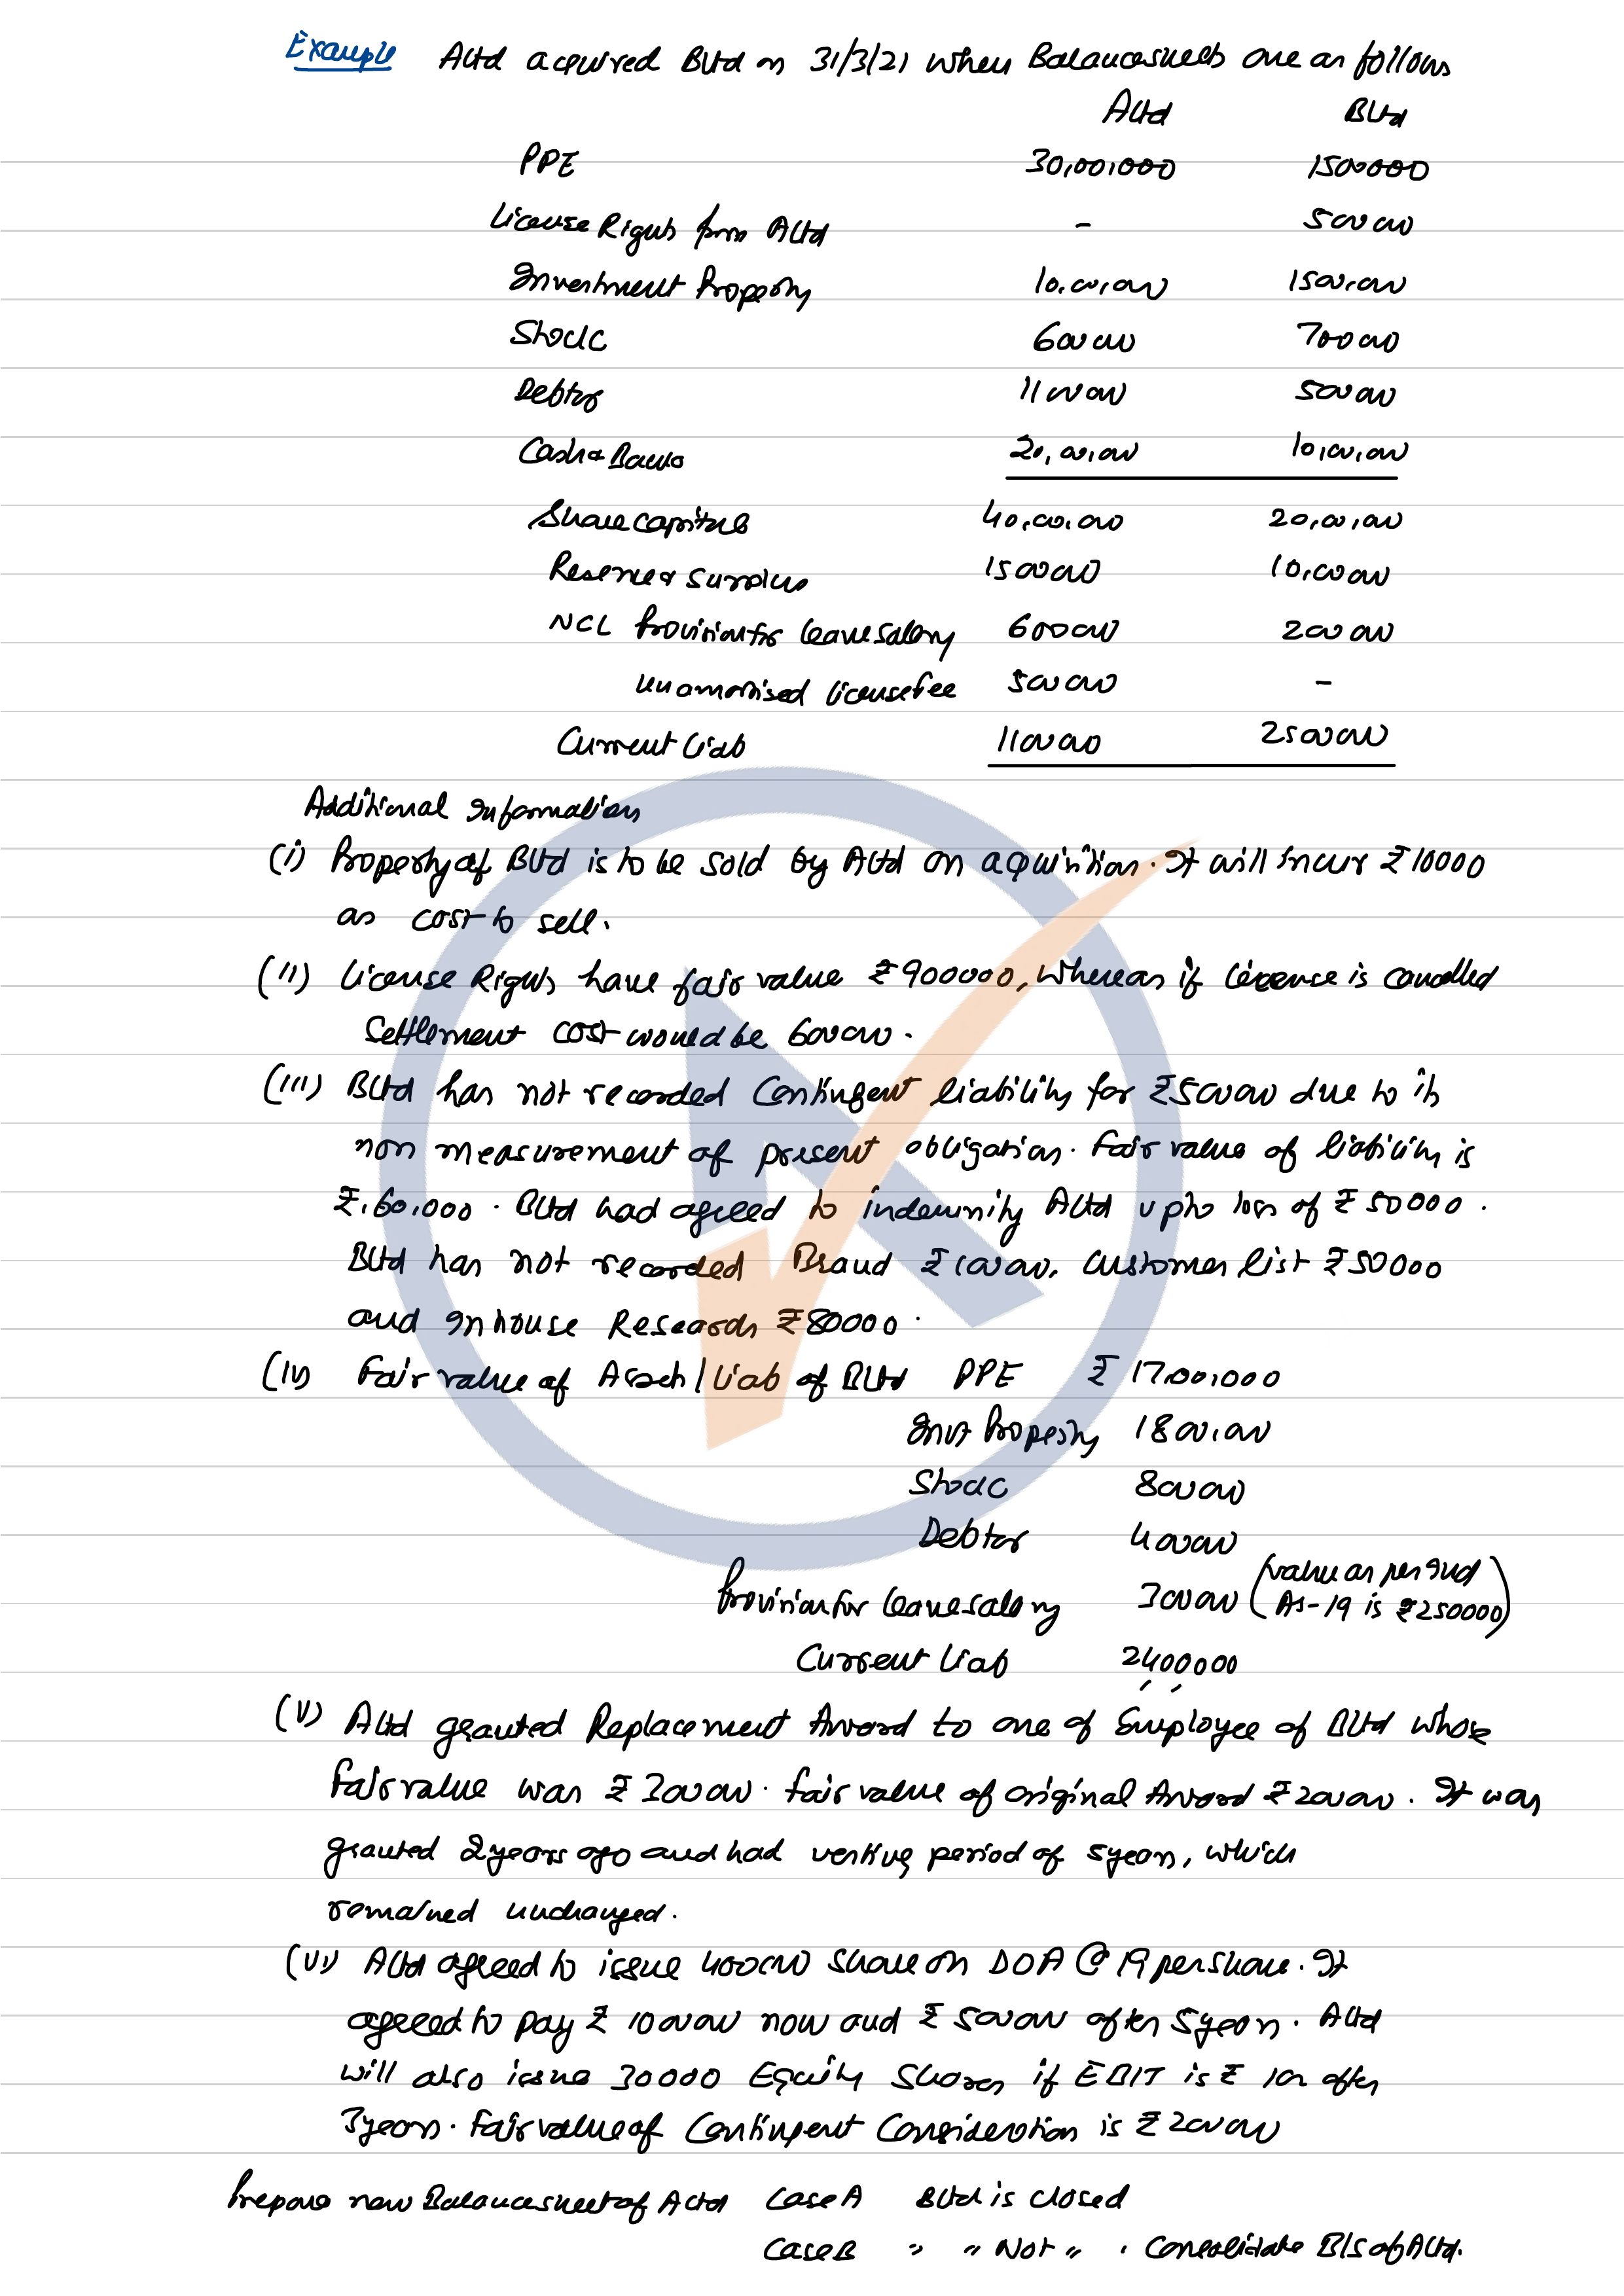 Example A Ltd acquired B Ltd on 31/3/21 when Balancesheets are as follows
A Ltd B Ltd
PPE 30,00,000 1500000
License Rights from A Ltd - 500000
Investment Property 10,00,000 1500,000
Stock 600000 700000
Debtor 1100000 500000
Cash & Bank 20,00,000 10,00,000
Share capital 40,00,000 20,00,000
Reserve & Surplus 1500000 10,00000
NCL Provision for leave salary 600000 200000
unamortised license fee 500000 -
Current Liab 1100000 2500000
Additional Information
(i) Property of B Ltd is to be sold by A Ltd on acquisition. It will incur ₹ 10000
as cost to sell.
(ii) License Rights have fair value ₹ 900000, whereas if license is cancelled
settlement cost would be 600000.
(iii) B Ltd has not recorded Contingent liability for ₹ 500000 due to its
non measurement of present obligation. Fair value of liability is
₹. 60,000. B Ltd had agreed to indemnity A Ltd upto loss of ₹ 50000.
B Ltd has not recorded Brand ₹ 100000, Customer list ₹ 50000
and Inhouse Research ₹ 80000.
(iv) Fair value of Asset / Liab of B Ltd PPE ₹ 1700,000
Invt Property 1800,000
Stock 800000
Debtor 400000
Provision for leave salary 300000 (value as per Ind
As-19 is ₹ 250000)
Current Liab 2400000
(v) A Ltd granted Replacement Award to one of Employee of B Ltd whose
fair value was ₹ 300000. fair value of original Award ₹ 200000. It was
granted 2 years ago and had vesting period of 5 years, which
remained unchanged.
(vi) A Ltd agreed to issue 400000 share on DOA @ 19 per share. It
agreed to pay ₹ 1000000 now and ₹ 500000 after 5 years. A Ltd
will also issue 30000 Equity Shares if EBIT is ₹ after
3 years. Fair value of Contingent Consideration is ₹ 200000
Prepare new Balancesheet of A Ltd Case A B Ltd is closed
Case B " " Not " . Consolidate B/S of A Ltd.